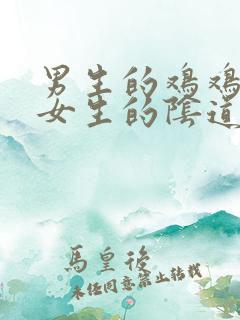 男生的鸡鸡
女生的陰道
馬皇後
未经同意禁止转载